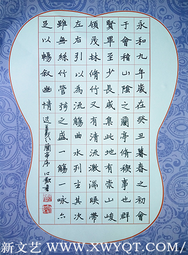 永和九年歲在癸丑暮春之初會
于會稽山陰之蘭亭脩禊事也群
賢畢至少長咸集此地有崇山峻
領茂林脩竹又有清流激湍暎帶
左右引以為流觴曲水列坐其次
雖無絲竹管弦之盛一觴一詠亦
足以暢敘幽情 蘭亭序 書
新文艺 - WWW.XWYQT.COM